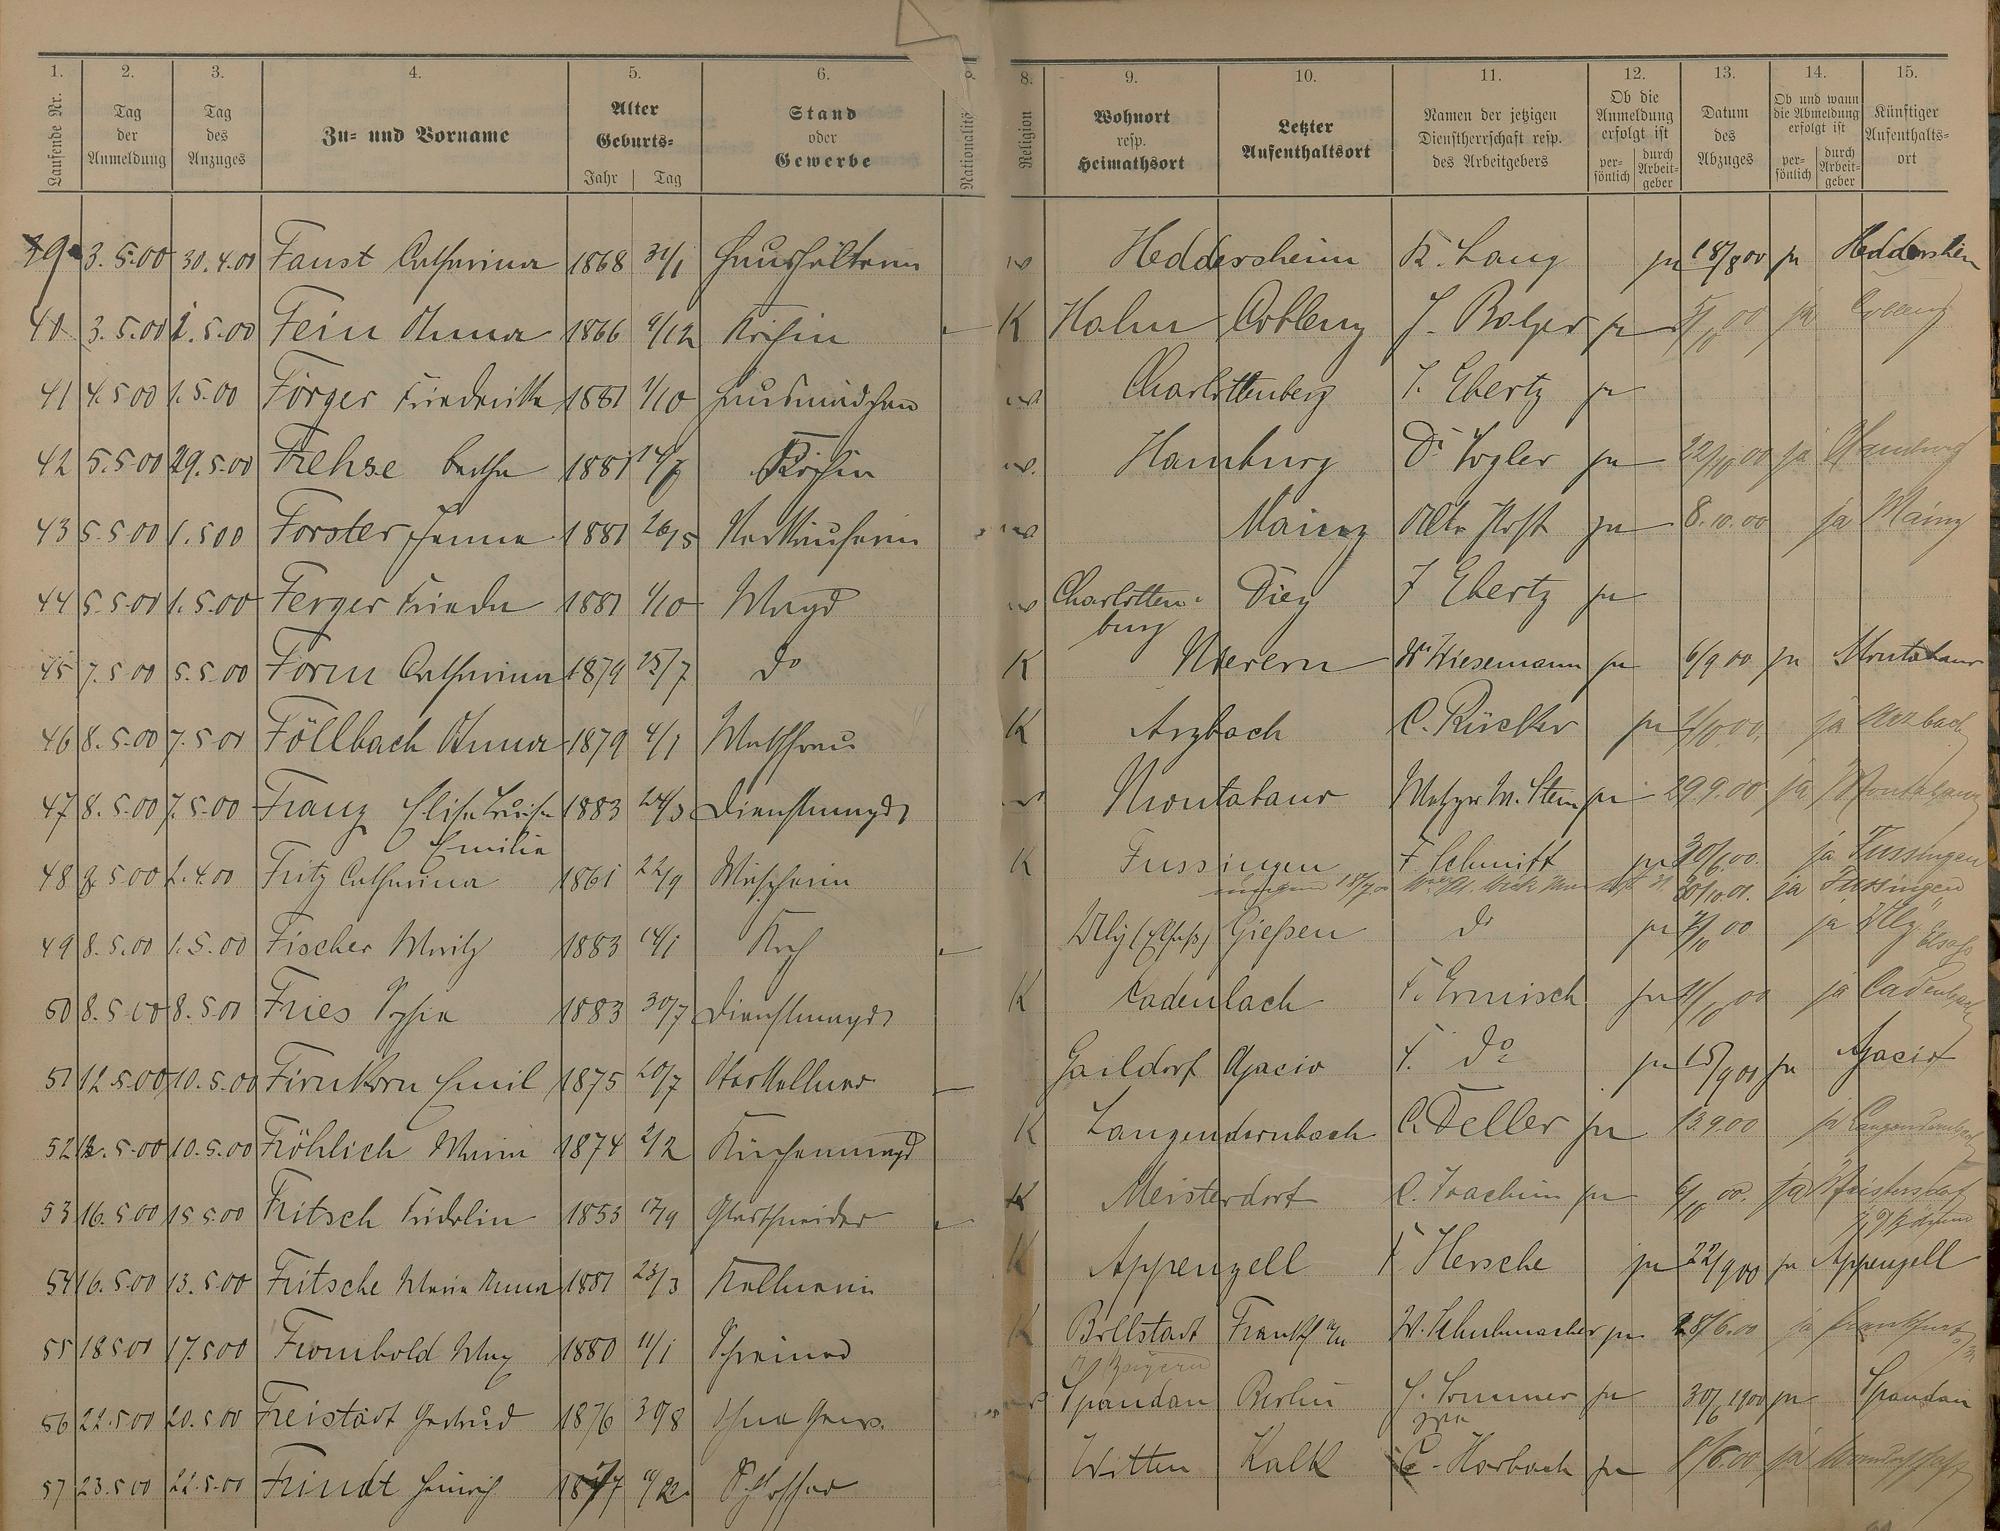 1. 2. 3. 4. 5. 6. 8. 9. 10. 11. 12. 13. 14. 15.
Laufende Nr.
Tag der Anmeldung
Tag des Anzuges
Zu- und Vorname
Alter Geburts-
Jahr Tag
Stand oder Gewerbe
Nationalität
Religion
Wohnort resp. Heimathsort
Letzter Aufenthaltsort
Namen der jetzigen Dienstherrschaft resp. des Arbeitgebers
Ob die Anmeldung erfolgt ist
per-sönlich durch Arbeit-geber
Datum des Abzuges
Ob und wann die Abmeldung erfolgt ist
per-sönlich durch Arbeit-geber
Künftiger Aufenthalts-ort
3.5.00 30.4.00 Faust Catharina 1868 31/1 Haushälterin Heddersheim K. Lang ja 18/8 00 ja
40 3.5.00 1.5.00 Fein Anna 1866 9/12 Köchin K Holm Coblenz J. Balzer ja ja Coblenz
41 4.5 00 1.5.00 Förger Friederike 1881 1/10 Hausmädchen J. Ebertz ja
42 5.5 00 29.5.00 Frehse Bertha 1881 Köchin Hamburg Dr Vogler ja 22/10 00 ja Hamburg
43 5.5 00 1.5 00 Forster 1881 26/5 Verkäuferin Mainz Alte Post ja 8.10.00 ja Mainz
44 5.5 00 1.5.00 Ferger Frieda 1881 1/10 Magd Charlotten- Diez J Ebertz ja
burg
45 7.5 00 5.5.00 Form Catharina 1879 25/7 do K Nievern Wiesemann ja 6/9.00 ja Montabaur
46 8.5.00 7.5 00 Föllbach Anna 1879 4/1 K Arzbach C. Rücker ja ja Arzbach
47 8.5.00 7.5.00 Franz Elise Luise 1883 24/3 Dienstmagd Montabaur Metzger M. Stein ja 29.9.00 ja Montabaur
Emilie
48 8.5 00 1.4.00 Fritz Catharina 1861 22/9 Wäscherin K Fussingen F. Schmitt ja 30/6.00. ja Fussingen
30/10.01. ja Fussingen
49 8.5.00 1.5.00 Fischer Moritz 1883 14/1 Koch (Elsaß) Gießen do ja ja Elsass
50 8.5.00 8.5.00 Fries Sophie 1883 30/7 Dienstmagd K Kadenbach F. Ermisch ja ja Cadenbach
51 12.5.00 10.5.00 Firnkorn Emil 1875 20/7 Oberkellner Gaildorf Ajacio F. do ja 15/9 00 ja
52 12.5.00 10.5.00 Fröhlich Maria 1874 2/2 Küchenmagd K Langendernbach C. Feller ja 13.9.00 ja Langendernbach
53 16.5 00 15 5.00 Fritsch Fridolin 1853 17/9 Glasschneider K Meisterdorf C. Joachim ja 6/10 00. ja
54 16.5.00 13.5.00 Fritsche Maria Anna 1881 23/3 Kellnerin K Appenzell F Hersche ja 22/9 00 ja Appenzell
55 18 5 00 17.5 00 Frombold Max 1880 11/1 Schreiner K Frankf a/M W. Schuhmacher ja 28/6.00 ja Frankfurt
56 22.5 00 20.5 00 Freistadt Gertrud 1876 30/8 Ohne Gew. Spandau Berlin J. Sommer ja 30/6 1900 ja Spandau
57 23.5 00 22.5.00 Frindt Heinrich 1877 Schlosser Witten Kalk C. Horbach ja 8/6.00 ja